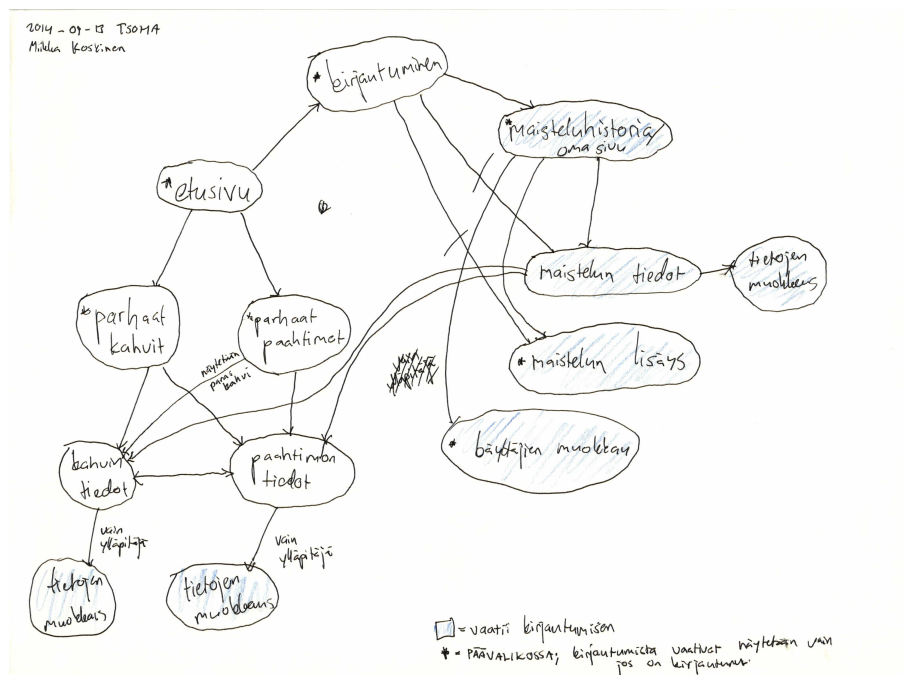 2014-09-13 TSOHA
Miikka Koskinen
* kirjautuminen
* maisteluhistoria,
oma sivu
* etusivu
maistelun tiedot
tietojen
muokkaus
* parhaat
kahvit
* parhaat
paahtimot
näytetään
paras
kahvi
* maistelun lisäys
vain
ylläpitäjä
* käyttäjien muokkau
kahvin
tiedot
paahtimon
tiedot
vain
ylläpitäjä
vain
ylläpitäjä
tietojen
muokkaus
tietojen
muokkaus
= vaatii kirjautumisen
* = PÄÄVALIKOSSA; kirjautumista vaativat näytetään vain
jos on kirjautunut.